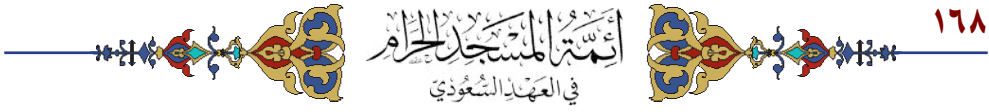 ١٦٨
أَئِمَّةُ المَسْجِدِ الحَرَامِ
في العَهْدِ السُّعُوديّ